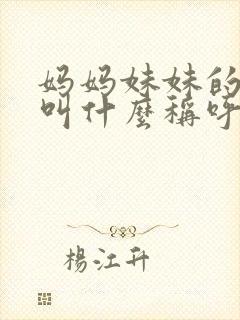 妈妈妹妹的
叫什麼稱呼
楊江升